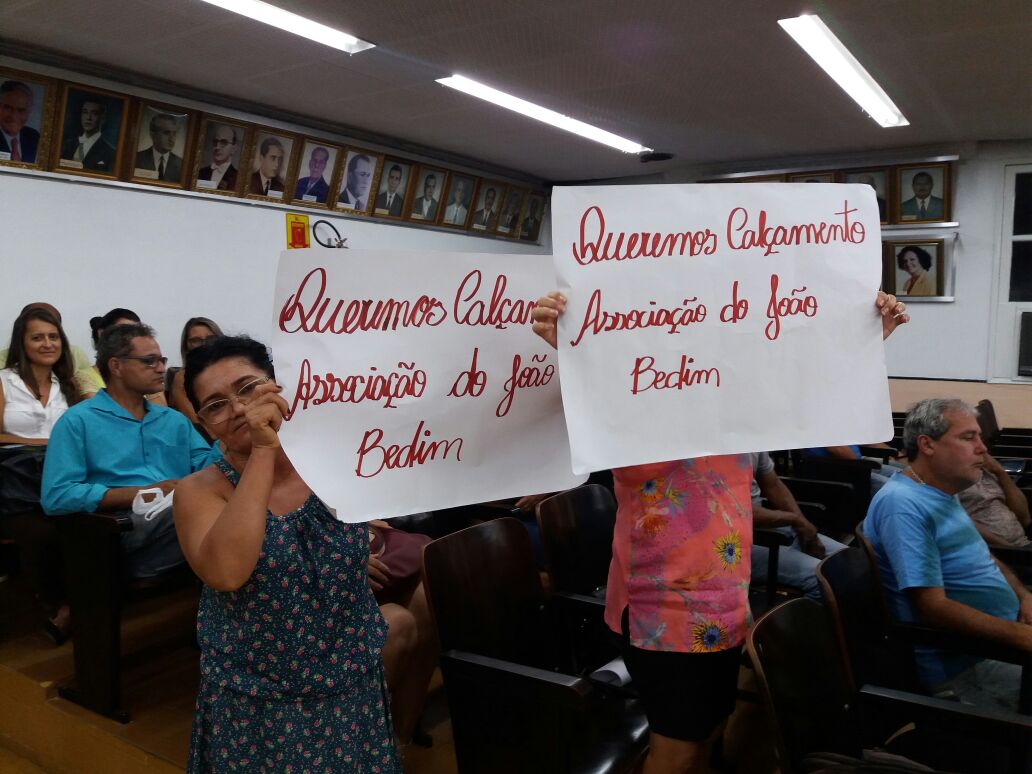 Queremos Calçam
Associação do João
Bedim
Queremos Calçamento
Associação do João
Bedim